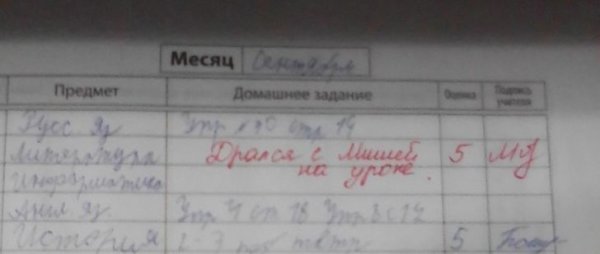 Месяц Сентябрь
Предмет Домашнее задание Оценка Подпись учителя
Русс. яз Упр №30 стр 14
Литература Дрался с Мишей на уроке. 5
Информатика
Англ яз Упр 4 ст 18 Упр 3 с 12
История 2-3 5